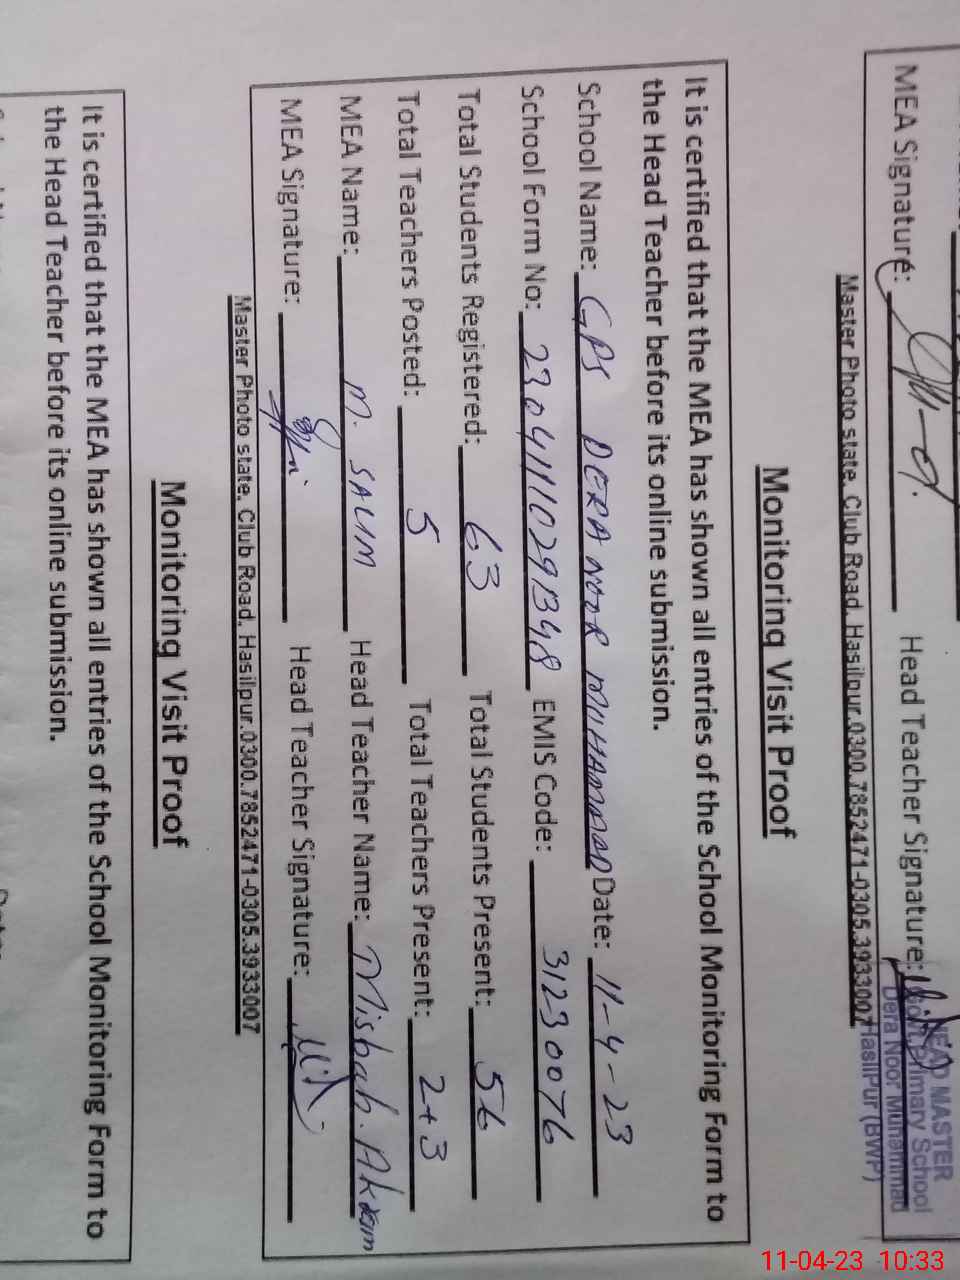 MEA Signature: Head Teacher Signature:
HEAD MASTER
Govt. Primary School
Dera Noor Muhammad
HasilPur (BWP)
Master Photo state, Club Road, Hasilpur.0300.7852471-0305.3933007
Monitoring Visit Proof
It is certified that the MEA has shown all entries of the School Monitoring Form to
the Head Teacher before its online submission.
School Name: GPS DERA NOOR MUHAMMAD Date: 11-4-23
School Form No: 23041110291348 EMIS Code: 31230076
Total Students Registered: 63 Total Students Present: 56
Total Teachers Posted: 5 Total Teachers Present: 2+3
MEA Name: M. SALIM Head Teacher Name: Misbah. Akram
MEA Signature: Head Teacher Signature:
Master Photo state, Club Road, Hasilpur.0300.7852471-0305.3933007
Monitoring Visit Proof
It is certified that the MEA has shown all entries of the School Monitoring Form to
the Head Teacher before its online submission.
11-04-23 10:33